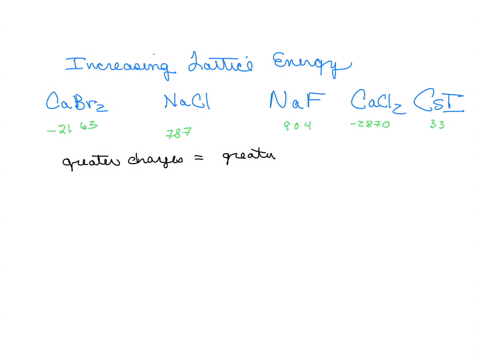 Increasing Lattice Energy
CaBr2 NaCl NaF CaCl2 CsI
-2163 787 904 -2870 33
greater charges = greatu